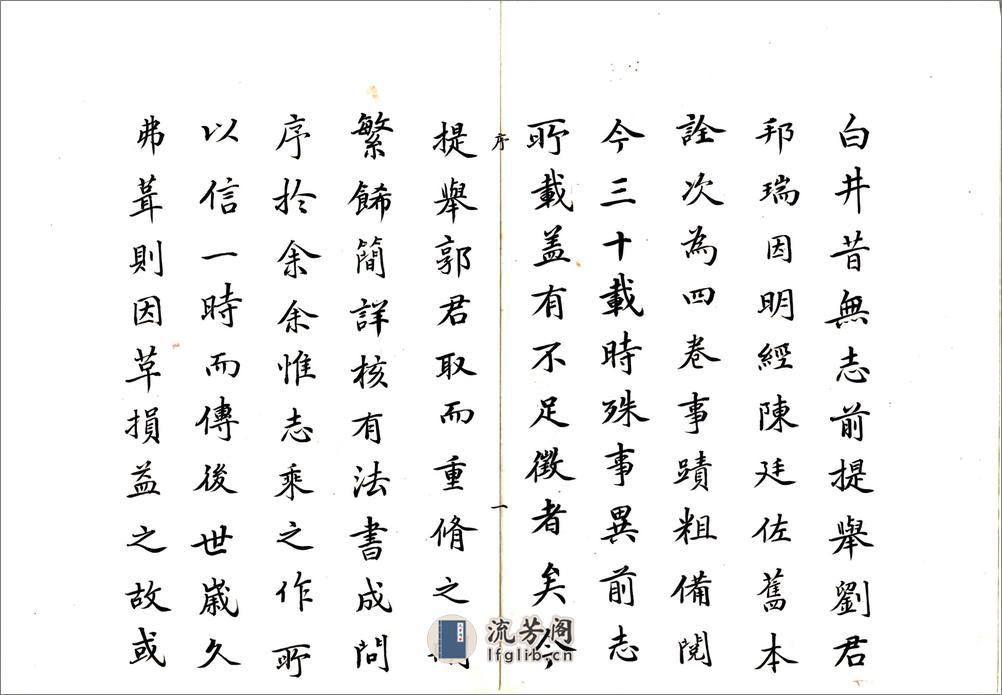 白井昔無志前提舉劉君
邦瑞因明經陳廷佐舊本
詮次為四卷事蹟粗備閱
今三十載時殊事異前志
所載盖有不足徵者矣今
序
一
提舉郭君取而重脩之
繁餙簡詳核有法書成問
序於余余惟志乘之作所
以信一時而傳後世歲久
弗葺則因草損益之故或
流芳阁
lfglib.cn